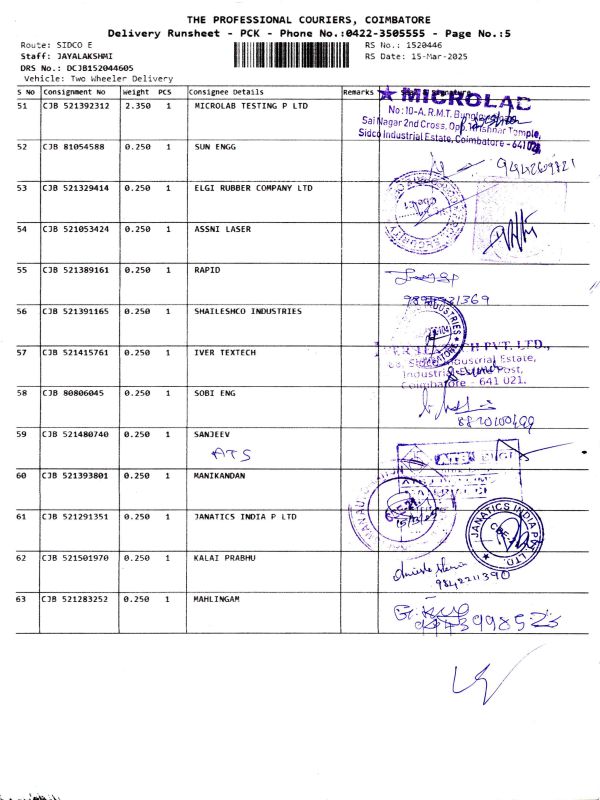 THE PROFESSIONAL COURIERS, COIMBATORE
Delivery Runsheet - PCK - Phone No.:0422-3505555 - Page No.:5
Route: SIDCO E
RS No.: 1520446
Staff: JAYALAKSHMI
RS Date: 15-Mar-2025
DRS No.: DCJB152044605
Vehicle: Two Wheeler Delivery
S No Consignment No Weight PCS Consignee Details Remarks
51 CJB 521392312 2.350 1 MICROLAB TESTING P LTD
★ MICROLAB
No:10-A, R.M.T.
Sai Nagar 2nd Cross, Opp. Krishnar Temple,
Sidco Industrial Estate, Coimbatore - 641 021.
52 CJB 81054588 0.250 1 SUN ENGG
53 CJB 521329414 0.250 1 ELGI RUBBER COMPANY LTD
54 CJB 521053424 0.250 1 ASSNI LASER
55 CJB 521389161 0.250 1 RAPID
56 CJB 521391165 0.250 1 SHAILESHCO INDUSTRIES
INDUSTRIES
57 CJB 521415761 0.250 1 IVER TEXTECH
PVT. LTD.,
Sidco Industrial Estate,
Industrial Post,
Coimbatore - 641 021.
58 CJB 80806045 0.250 1 SOBI ENG
8820100499
59 CJB 521480740 0.250 1 SANJEEV
ATS
60 CJB 521393801 0.250 1 MANIKANDAN
61 CJB 521291351 0.250 1 JANATICS INDIA P LTD
JANATICS INDIA PVT. LTD. ★
62 CJB 521501970 0.250 1 KALAI PRABHU
9842211390
63 CJB 521283252 0.250 1 MAHLINGAM